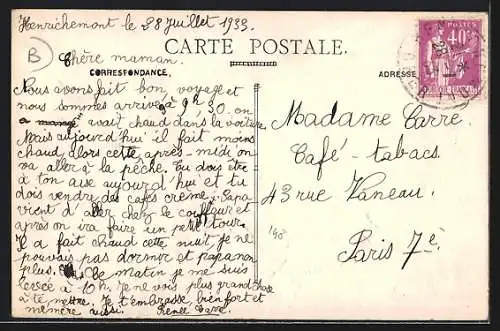 Henrichemont le 28 Juillet 1933.
B
Chère maman.
CARTE POSTALE.
CORRESPONDANCE
ADRESSE
POSTES
40c
Nous avons fait bon voyage et
nous sommes arrivés à 9h 30. on
a mangé avait chaud dans la voiture
Mais aujourd'hui il fait moins
chaud alors cette après-midi on
va aller à la pêche. Tu dois être
à ton aise aujourd'hui et tu
dois vendre des cafés crème. Papa
vient d'aller chez le coiffeur et
après on ira faire un petit tour.
Il a fait chaud cette nuit je ne
pouvais pas dormir et papa non
plus. Ce matin je me suis
levée à 10h. Je ne vois plus grand chose
à te mettre. Je t'embrasse bien fort et
mémère aussi. Renée Carre
Madame Carre.
Café-tabacs.
43 rue Vaneau.
Paris 7è